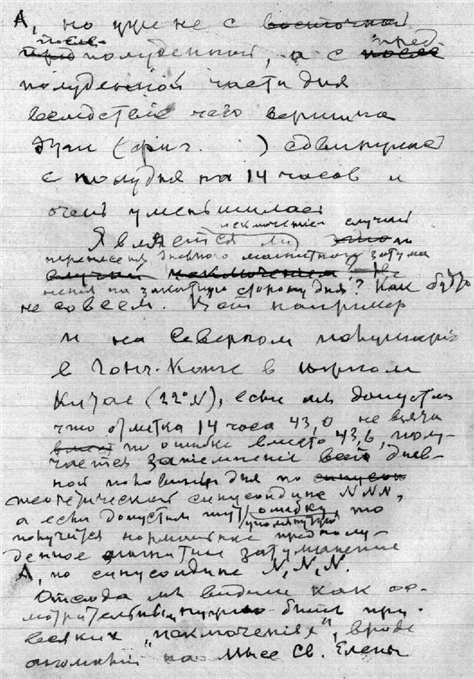 А, но уже не с восточной
после-
полуденной, а с после пред
полуденной части дня
вследствие чего вершина
дуги (фиг.      ) сдвинулась
с полудня на 14 часов и
очень уменьшилась
исключением случай
Является ли это
перенесения дневного магнитного затума
случай исключением
нения на закатную сторону дня? Как будто
не совсем. Вот например
и на Северном полушарии
в Гонг-Конге в южном
Китае (22°N), если мы допустим
что отметка 14 часа 43,0 не взята
вместо по ошибке вместо 43,6, полу-
чается затемнение всей днев-
ной половины дня по синусои
теоретической синусоиде NNN,
а если допустим эту ошибку, то
упомянутую
получится нормальное предполу-
денное магнитное затуманение
А, по синусоиде N,N,N.
Отсюда мы видим как ос-
мотрительным нужно быть при
всяких „исключениях", вроде
аномалий на мысе Св. Елены